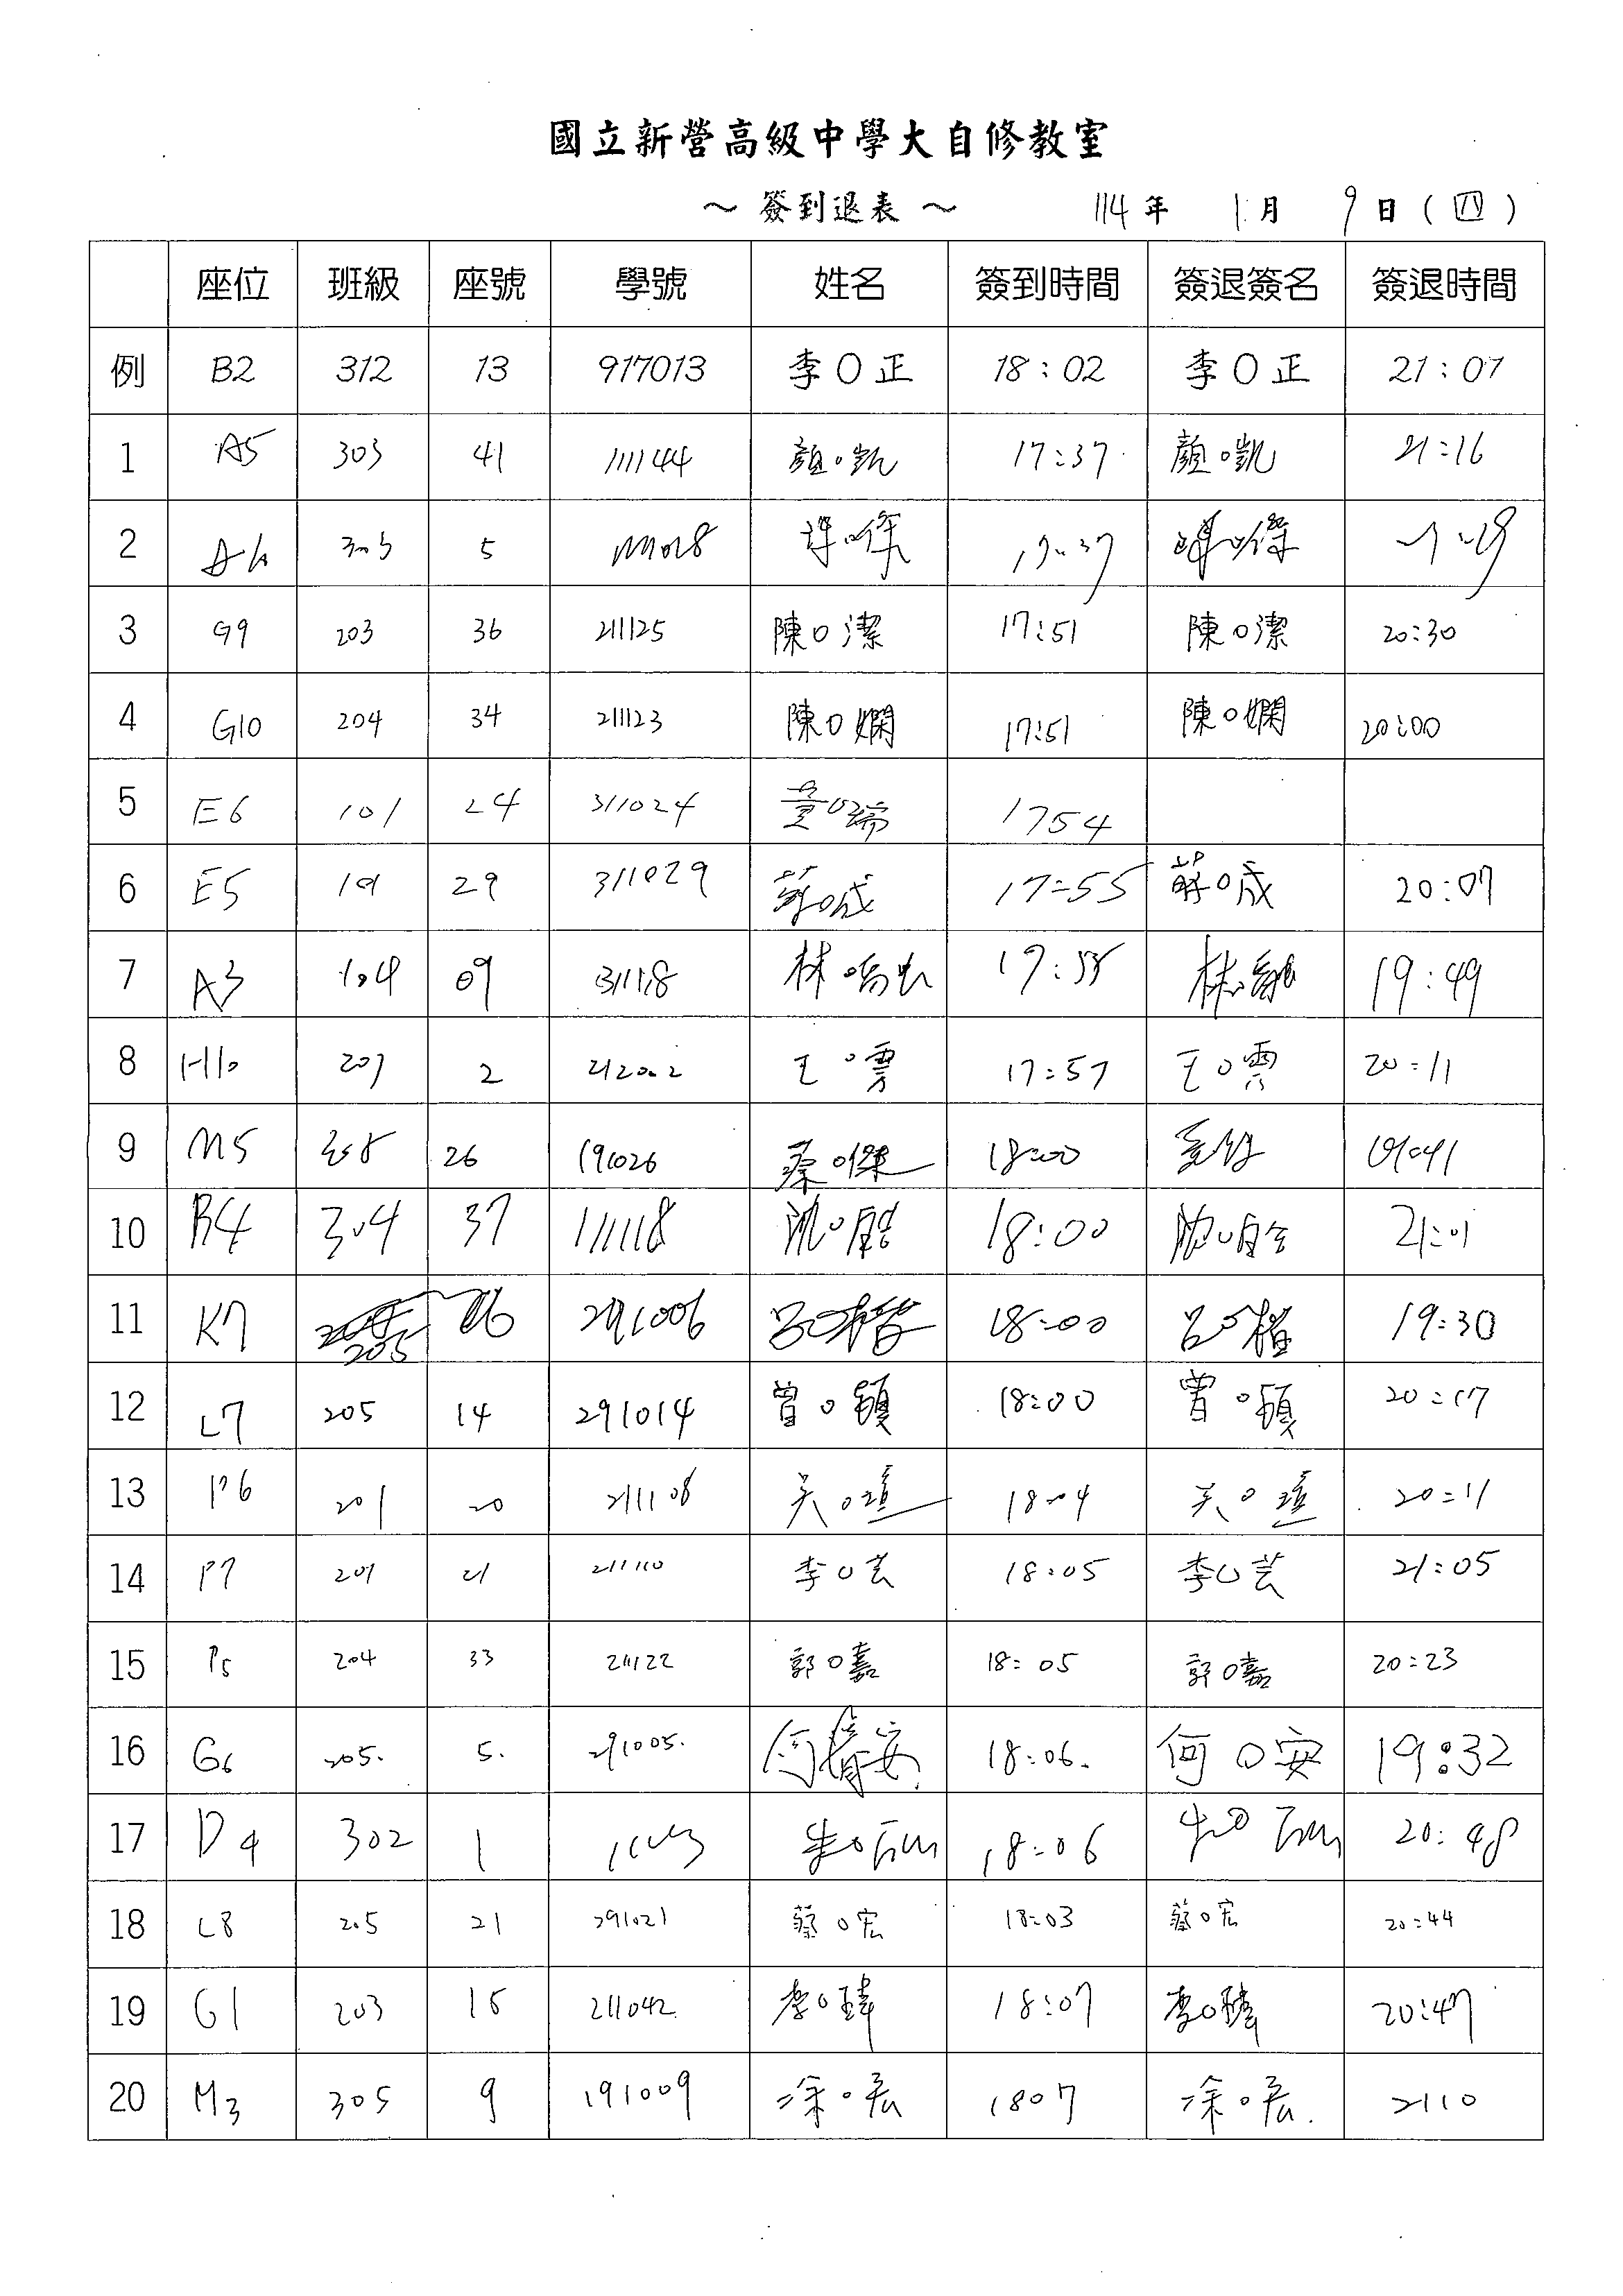 國立新營高級中學大自修教室
～ 簽到退表 ～ 114 年 1 月 9 日 ( 四 )
座位 班級 座號 學號 姓名 簽到時間 簽退簽名 簽退時間
例 B2 312 13 917013 李O正 18:02 李O正 21:07
1 A5 303 41 111144 顏O凱 17:37 顏O凱 21:16
2 5
3 G9 203 36 211125 陳O潔 17:51 陳O潔 20:30
4 G10 204 34 211123 陳O嫻 17:51 陳O嫻 20:00
5 E6 101 24 311024 1754
6 E5 101 29 311029 17:55 蔣O成 20:07
7 A3 104 09 19:49
8 H10 207 2 212002 王O雩 17:57 王O雩 20:11
9 M5 26 191026 蔡O傑 18:00
10 B4 304 37 111118 18:00 21:01
11 K7 205 06 291006 呂O楷 18:00 呂O楷 19:30
12 L7 205 14 291014 曾O穎 18:00 曾O穎 20:17
13 P6 201 20 211108 吳O瑄 18:04 吳O瑄 20:11
14 P7 201 21 211110 李O芸 18:05 李O芸 21:05
15 P5 204 33 211122 郭O嘉 18:05 郭O嘉 20:23
16 G6 205. 5. 291005. 18:06. 何O安 19:32
17 D4 302 1 18:06 20:48
18 L8 205 21 291021 蔡O宏 18:03 蔡O宏 20:44
19 G1 203 15 211042 李O瑋 18:07 李O瑋 20:47
20 M3 305 9 191009 涂O宏 1807 涂O宏. 2110